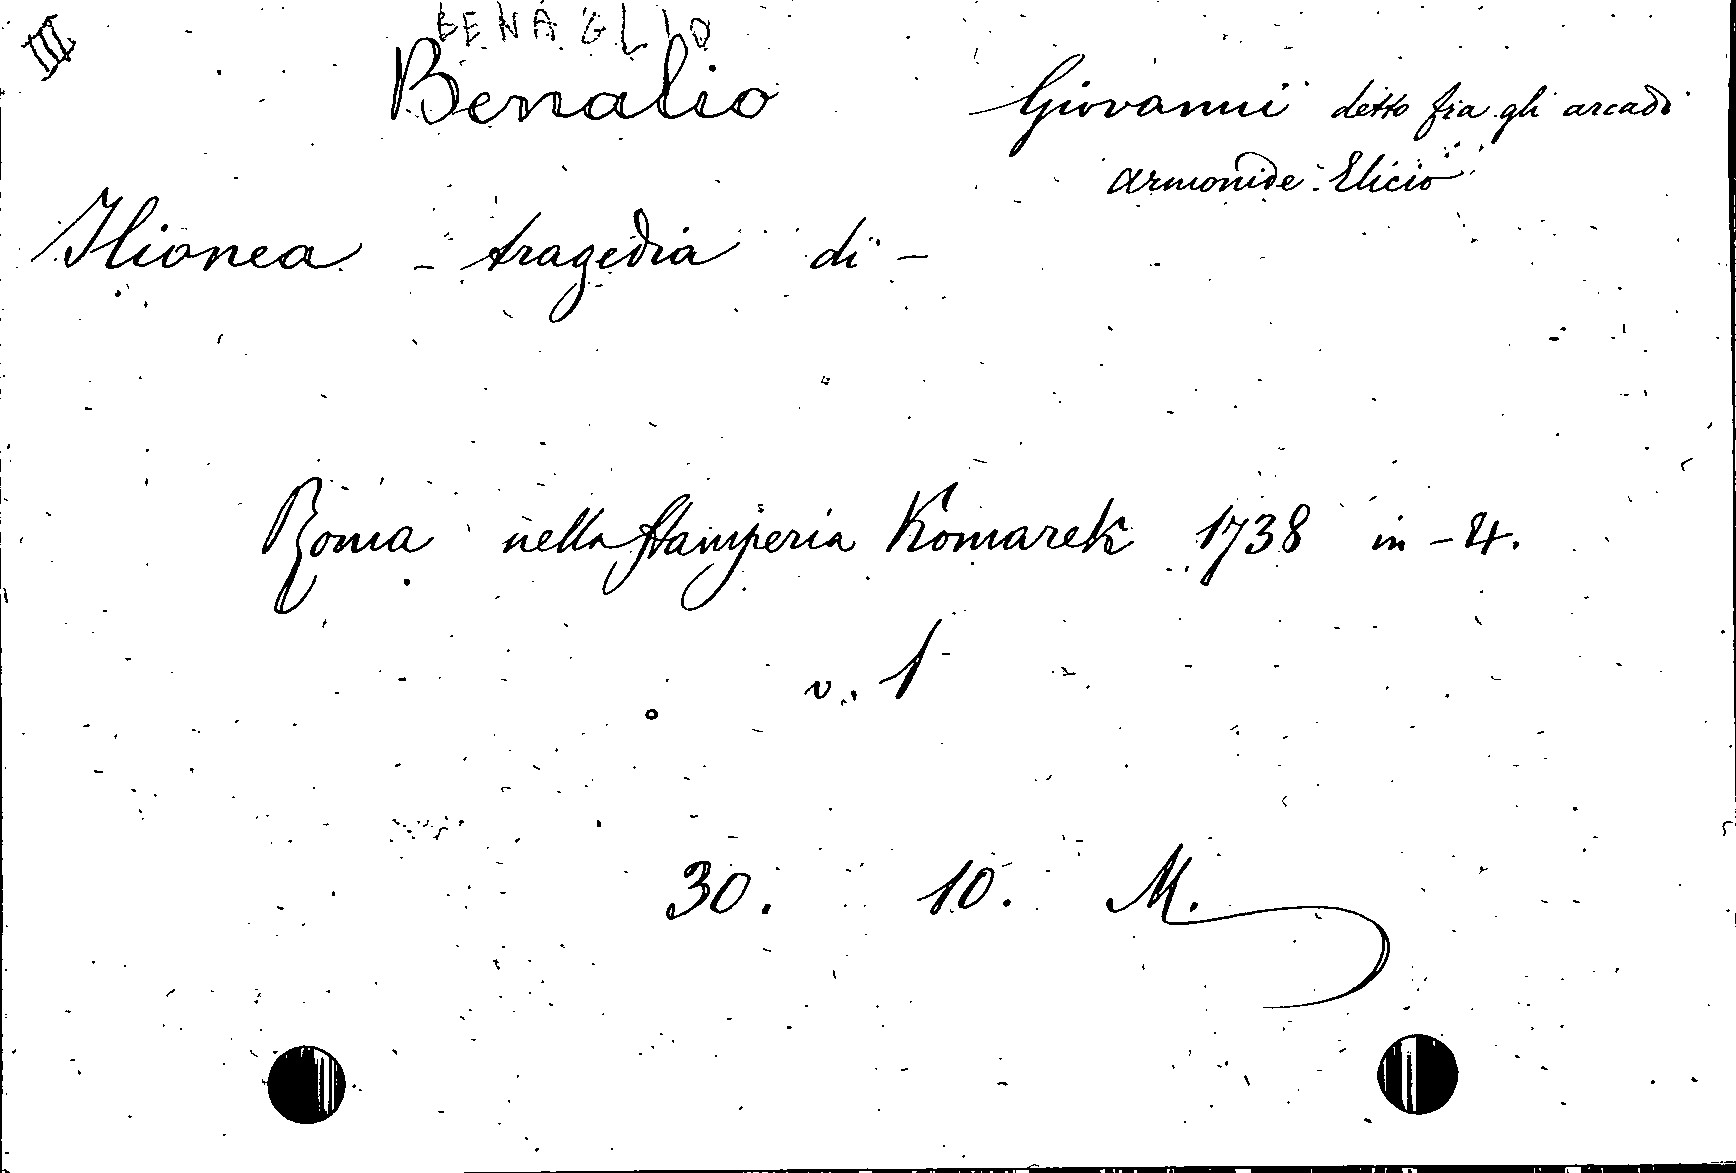 III
BENAGLIO
Benalio Giovanni detto fra gli arcadi
armonide Elicio
Ilionea - tragedia di -
Roma nella stamperia Komarek 1738 in-4.
v. 1
30. 10. M.